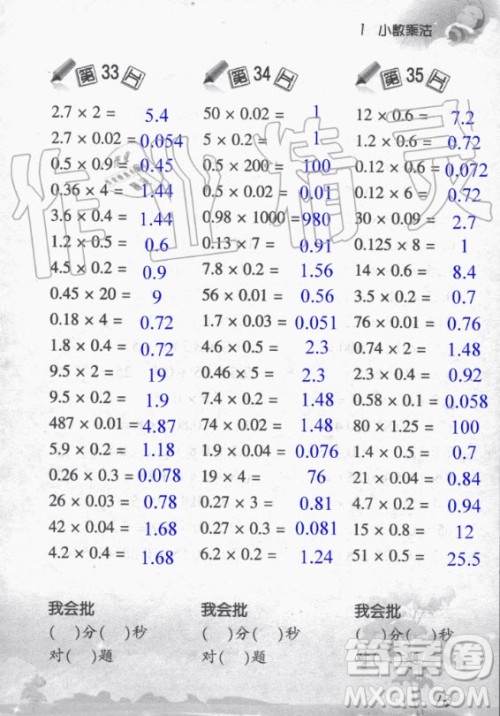 1 小数乘法
第33工
2.7 × 2 = 5.4
2.7 × 0.02 = 0.054
0.5 × 0.9 = 0.45
0.36 × 4 = 1.44
3.6 × 0.4 = 1.44
1.2 × 0.5 = 0.6
4.5 × 0.2 = 0.9
0.45 × 20 = 9
0.18 × 4 = 0.72
1.8 × 0.4 = 0.72
9.5 × 2 = 19
9.5 × 0.2 = 1.9
487 × 0.01 = 4.87
5.9 × 0.2 = 1.18
0.26 × 0.3 = 0.078
26 × 0.03 = 0.78
42 × 0.04 = 1.68
4.2 × 0.4 = 1.68
我会批
( )分( )秒
对( )题
第34工
50 × 0.02 = 1
5 × 0.2 = 1
0.5 × 200 = 100
0.5 × 0.2 = 0.1
0.98 × 1000 = 980
0.13 × 7 = 0.91
7.8 × 0.2 = 1.56
56 × 0.01 = 0.56
1.7 × 0.03 = 0.051
4.6 × 0.5 = 2.3
0.46 × 5 = 2.3
7.4 × 0.2 = 1.48
74 × 0.02 = 1.48
1.9 × 0.04 = 0.076
19 × 4 = 76
0.27 × 3 = 0.81
2.7 × 0.03 = 0.081
6.2 × 0.2 = 1.24
第35工
12 × 0.6 = 7.2
1.2 × 0.6 = 0.72
0.12 × 0.6 = 0.072
0.12 × 6 = 0.72
30 × 0.09 = 2.7
0.125 × 8 = 1
14 × 0.6 = 8.4
3.6 × 0.2 = 0.72
36 × 0.01 = 0.36
0.74 × 2 = 1.48
2.3 × 0.4 = 0.92
0.58 × 0.1 = 0.058
80 × 1.25 = 100
1.4 × 0.7 = 0.98
4.7 × 0.2 = 0.94
15 × 0.8 = 12
51 × 0.5 = 25.5
我会批
( )分( )秒
对( )题
我会批
( )分( )秒
对( )题
作业精灵
答案圈
MXQE.COM